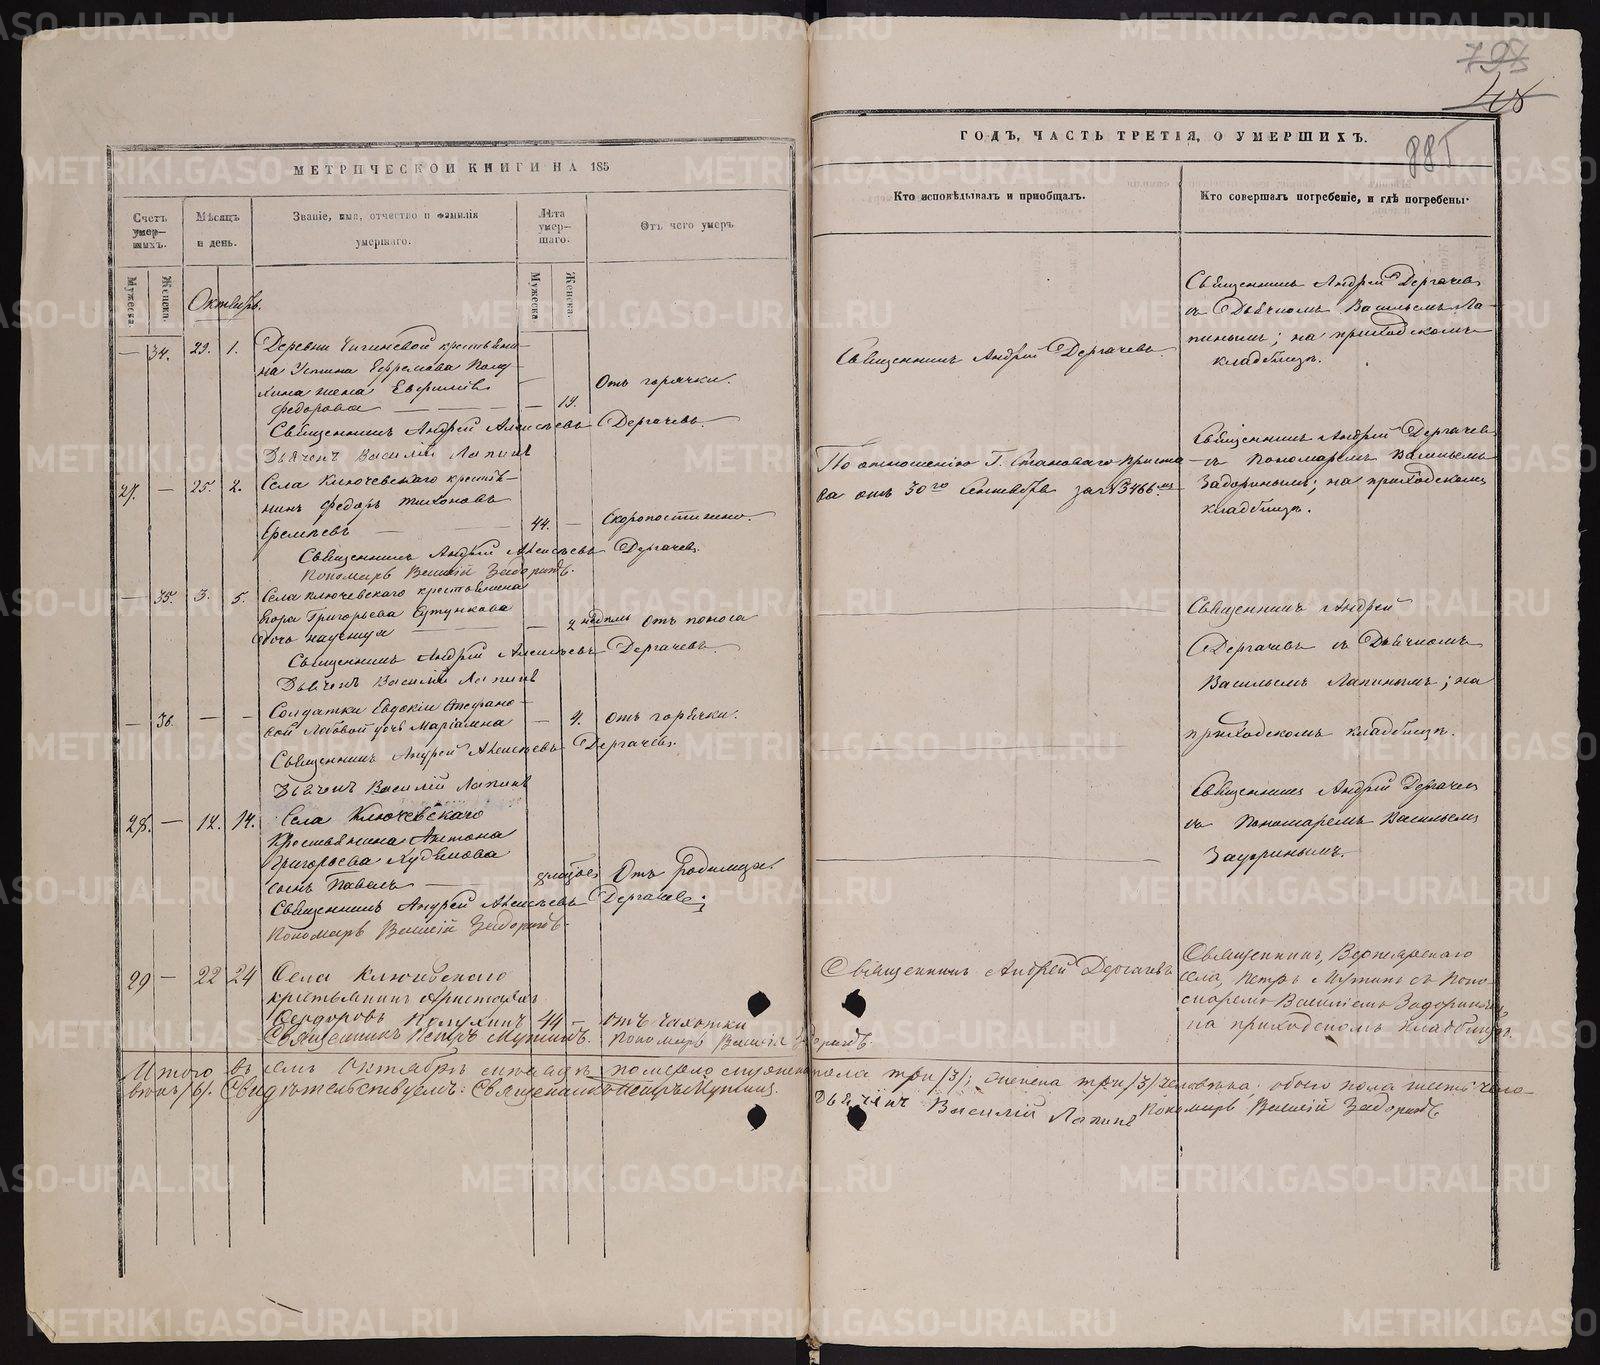 798
408
885
МЕТРИЧЕСКОЙ КНИГИ НА 185
ГОДЪ, ЧАСТЬ ТРЕТІЯ, О УМЕРШИХЪ.
Счетъ умер-шихъ.
Мѣсяцъ и день.
Званіе, имя, отчество и фамилія умершаго.
Лѣта умер-шаго.
Отъ чего умеръ
Кто исповѣдывалъ и пріобщалъ.
Кто совершалъ погребеніе, и гдѣ погребены.
Мужеска.
Женска.
Мужеска
Женска.
Октябрь.
— 34. 29. 1. Деревни крестьяни-
на Устина Ефремова Полу-
хина жена Евфимія
Федорова — — 19. Отъ горячки.
Священникъ Андрей Дергачевъ.
Священникъ Андрей Дергачевъ
съ Дьячкомъ Васильемъ Ла-
пинымъ; на приходскомъ
кладбищѣ.
Священникъ Андрей Алексѣевъ Дергачевъ.
Дьячекъ Василій Лапинъ
27. — 25. 2. Села Ключевскаго крестья-
нинъ Федоръ Тихоновъ
Еремѣевъ — 44. — Скоропостижно.
По отношенію Г. Становаго Приста-
ва отъ 30го Сентября за №3466мъ
Священникъ Андрей Дергачевъ
съ Пономаремъ Васильемъ
Задоринымъ; на приходскомъ
кладбищѣ.
Священникъ Андрей Алексѣевъ Дергачевъ.
Пономарь Василій Задоринъ.
— 35. 3. 5. Села Ключевскаго крестьянина
Егора Григорьева Сутункова
дочь — 2 недѣль Отъ поноса
Священникъ Андрей
Дергачевъ съ Дьячкомъ
Васильемъ Лапинымъ; на
приходскомъ кладбищѣ.
Священникъ Андрей Алексѣевъ Дергачевъ.
Дьячекъ Василій Лапинъ
— 36. — — Солдатки Евдокіи Стефано-
вой Лобовой дочь Маріамна — 4. Отъ горячки.
Священникъ Андрей Алексѣевъ Дергачевъ.
Дьячекъ Василій Лапинъ
28. — 12. 14. Села Ключевскаго
Крестьянина Антона
Григорьева
сынъ Павелъ — Отъ родимца.
Священникъ Андрей Дергачевъ
съ Пономаремъ Васильемъ
Задоринымъ.
Священникъ Андрей Алексѣевъ Дергачевъ;
Пономарь Василій Задоринъ.
29 — 22 24 Села Ключевскаго
крестьянинъ
Феодоровъ Полухинъ 44 — отъ чахотки
Священникъ Андрей Дергачевъ
Священникъ,
села, Петръ съ Поно-
маремъ Василіемъ Задоринымъ,
на приходскомъ кладбищѣ.
Священникъ Петръ Пономарь Василій Задоринъ.
Итого въ семъ Октябрѣ мѣсяцѣ померло мужеска пола три /3/; женска три /3/ человѣка; обоего пола шесть чело-
вѣкъ /6/. Свидѣтельствуемъ: Священникъ Петръ
Дьячекъ Василій Лапинъ Пономарь Василій Задоринъ
METRIKI.GASO-URAL.RU